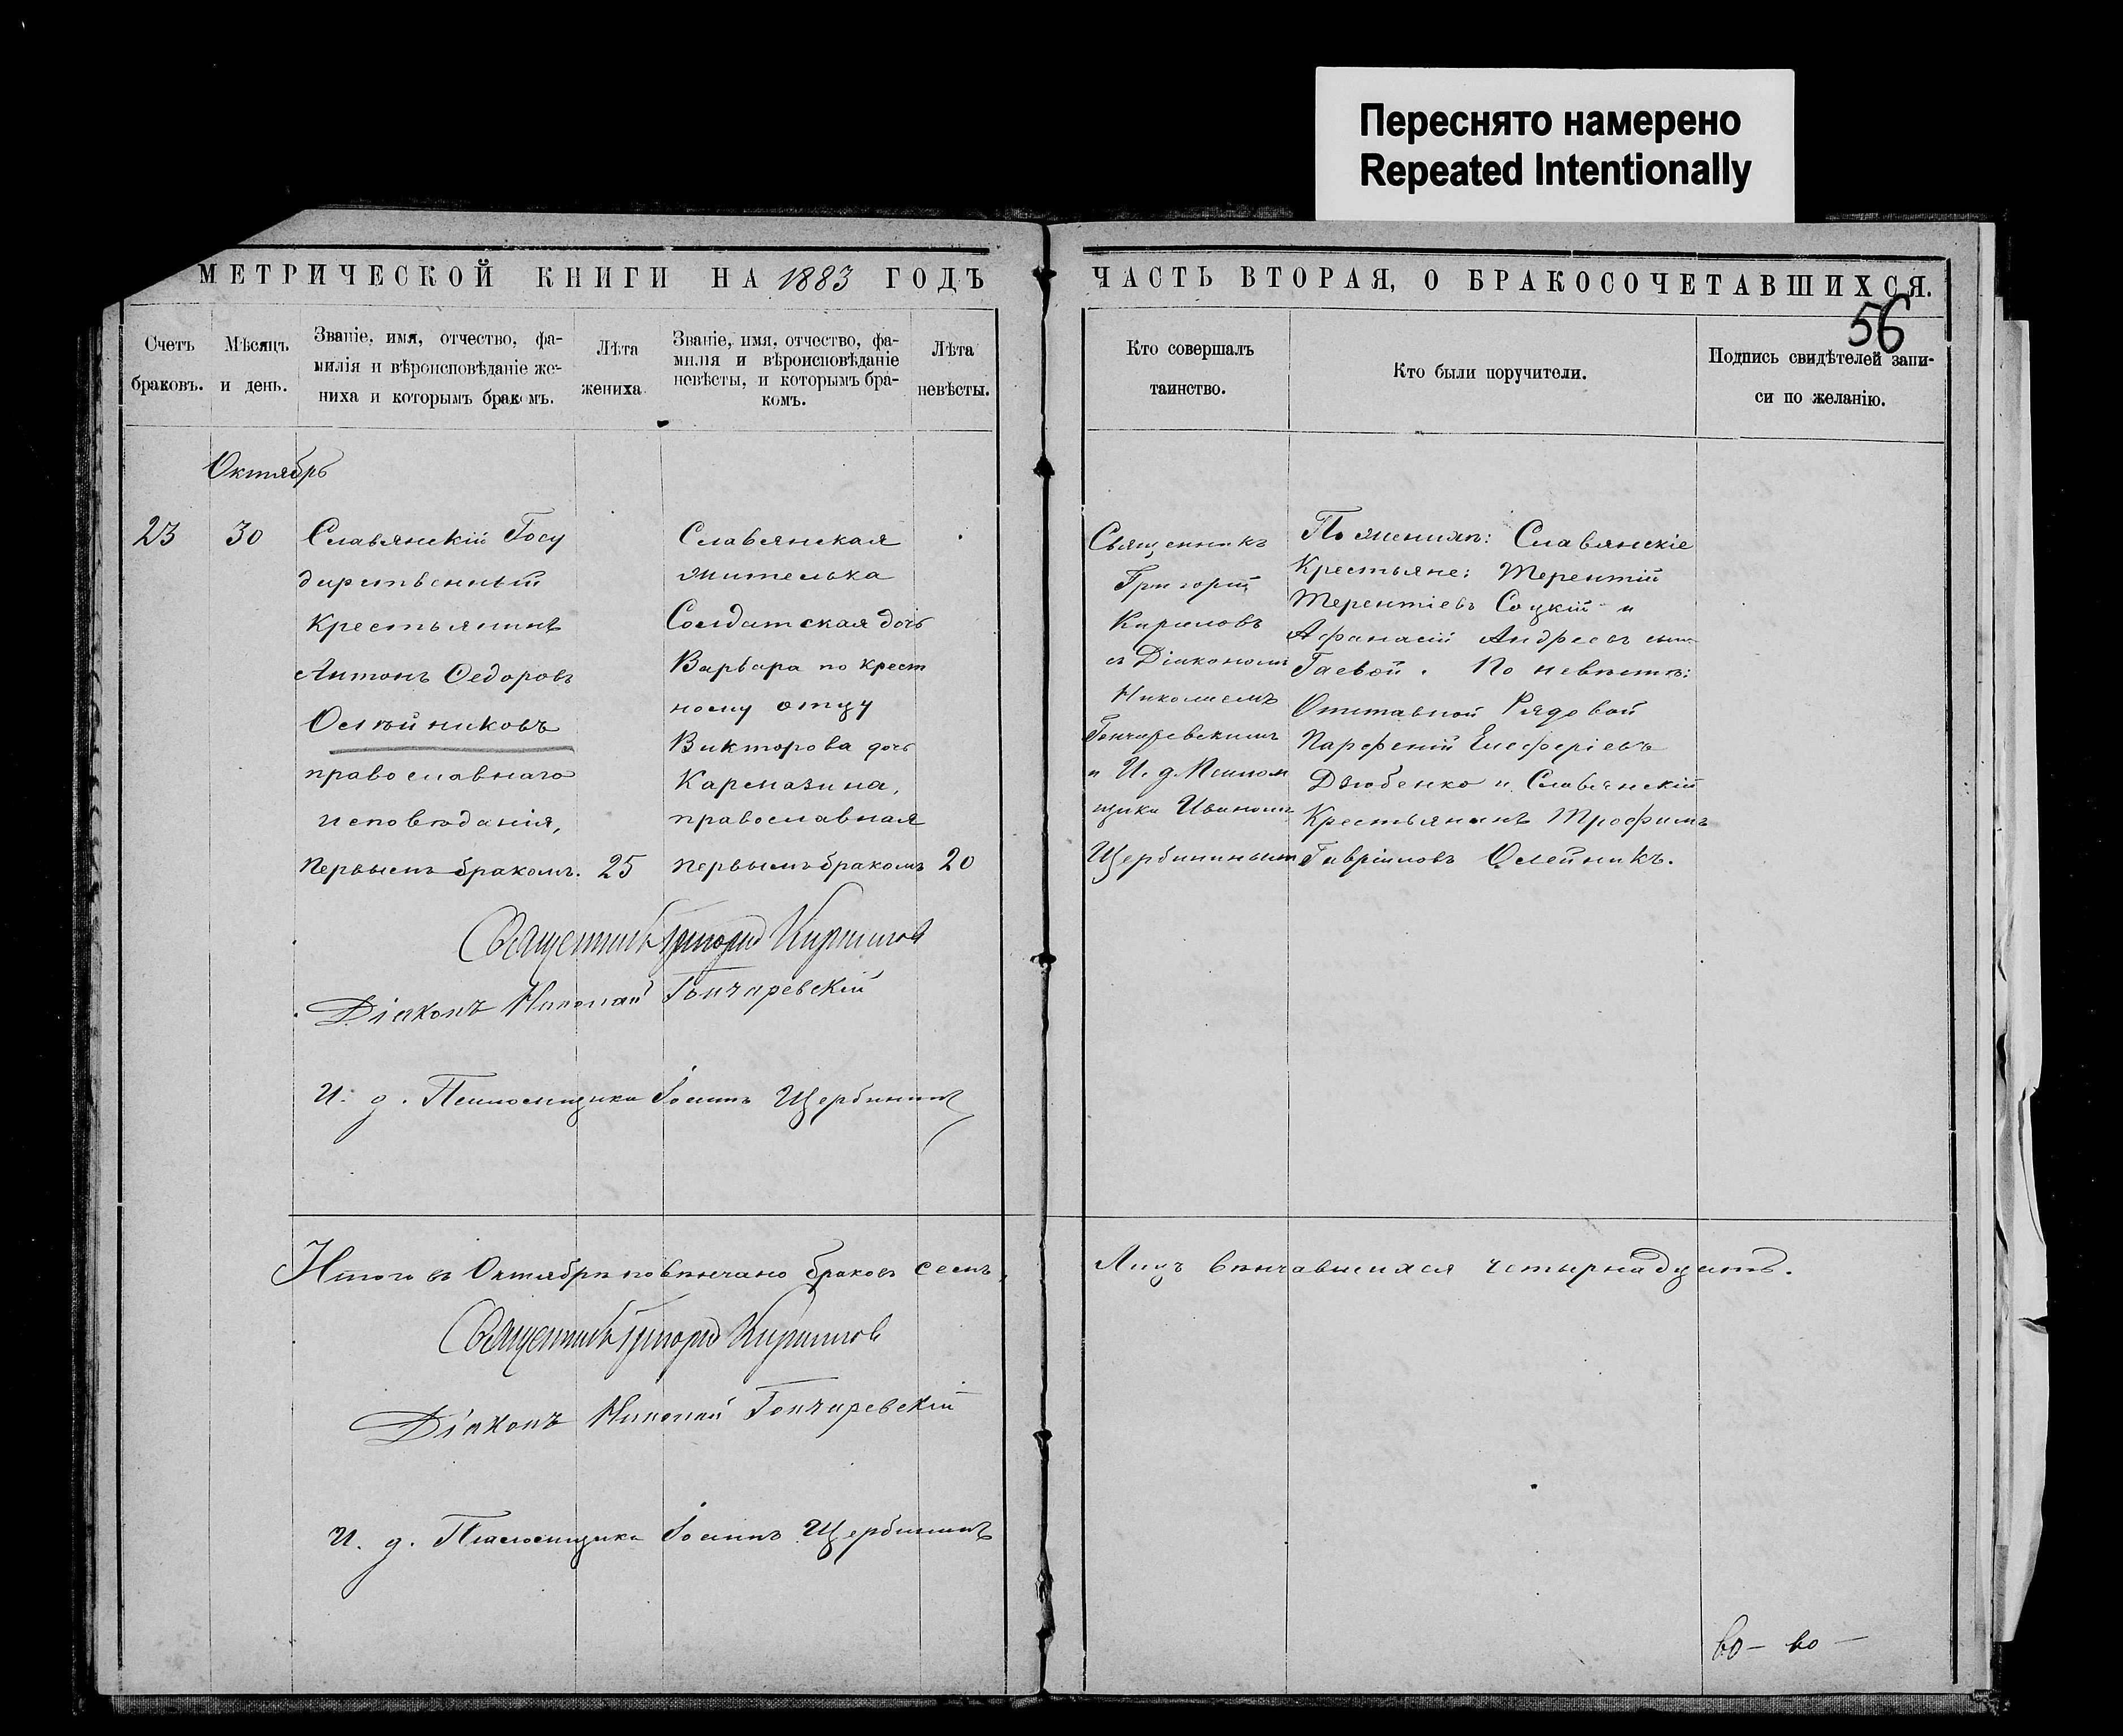 Переснято намерено
Repeated Intentionally
МЕТРИЧЕСКОЙ КНИГИ НА 1883 ГОДЪ
Счетъ браковъ.
Мѣсяцъ и день.
Званіе, имя, отчество, фа-
милія и вѣроисповѣданіе же-
ниха и которымъ бракомъ.
Лѣта жениха.
Званіе, имя, отчество, фа-
милія и вѣроисповѣданіе
невѣсты, и которымъ бра-
комъ.
Лѣта невѣсты.
Октябрь
23
30
Славянскій Госу
дарственный
Крестьянинъ
Антонъ Ѳедоровъ
Олѣйниковъ
православнаго
исповѣданія,
первымъ бракомъ.
25
Славянская
жителька
Солдатская дочь
Варвара по крест
ному отцу
Викторова дочь
Кармазина,
православная
первымъ бракомъ
20
Священникъ Григорій Кирилловъ
Діаконъ Николай Гончаревскій
И. д. Псаломщика Іоаннъ Щербининъ
Итого въ Октябрѣ повѣнчано браковъ семь,
Священникъ Григорій Кирилловъ
Діаконъ Николай Гончаревскій
И. д. Псаломщика Іоаннъ Щербининъ
ЧАСТЬ ВТОРАЯ, О БРАКОСОЧЕТАВШИХСЯ.
56
Кто совершалъ
таинство.
Кто были поручители.
Подпись свидѣтелей запи-
си по желанію.
Священникъ
Григорій
Кириловъ
съ Діакономъ
Николаемъ
Гончаревскимъ
и И. д. Псалом
щика Иваномъ
Щербининымъ
По женихѣ: Славянскіе
Крестьяне: Терентій
Терентіевъ Соцкій и
Афанасій Андреевъ сынъ
Гаевой. По невѣстѣ:
Отставной Рядовой
Парфеній Елефѳеріевъ
Дзюбенко и Славянскій
Крестьянинъ Трофимъ
Гавріиловъ Олейникъ.
Лицъ вѣнчавшихся четырнадцать.
во- во -